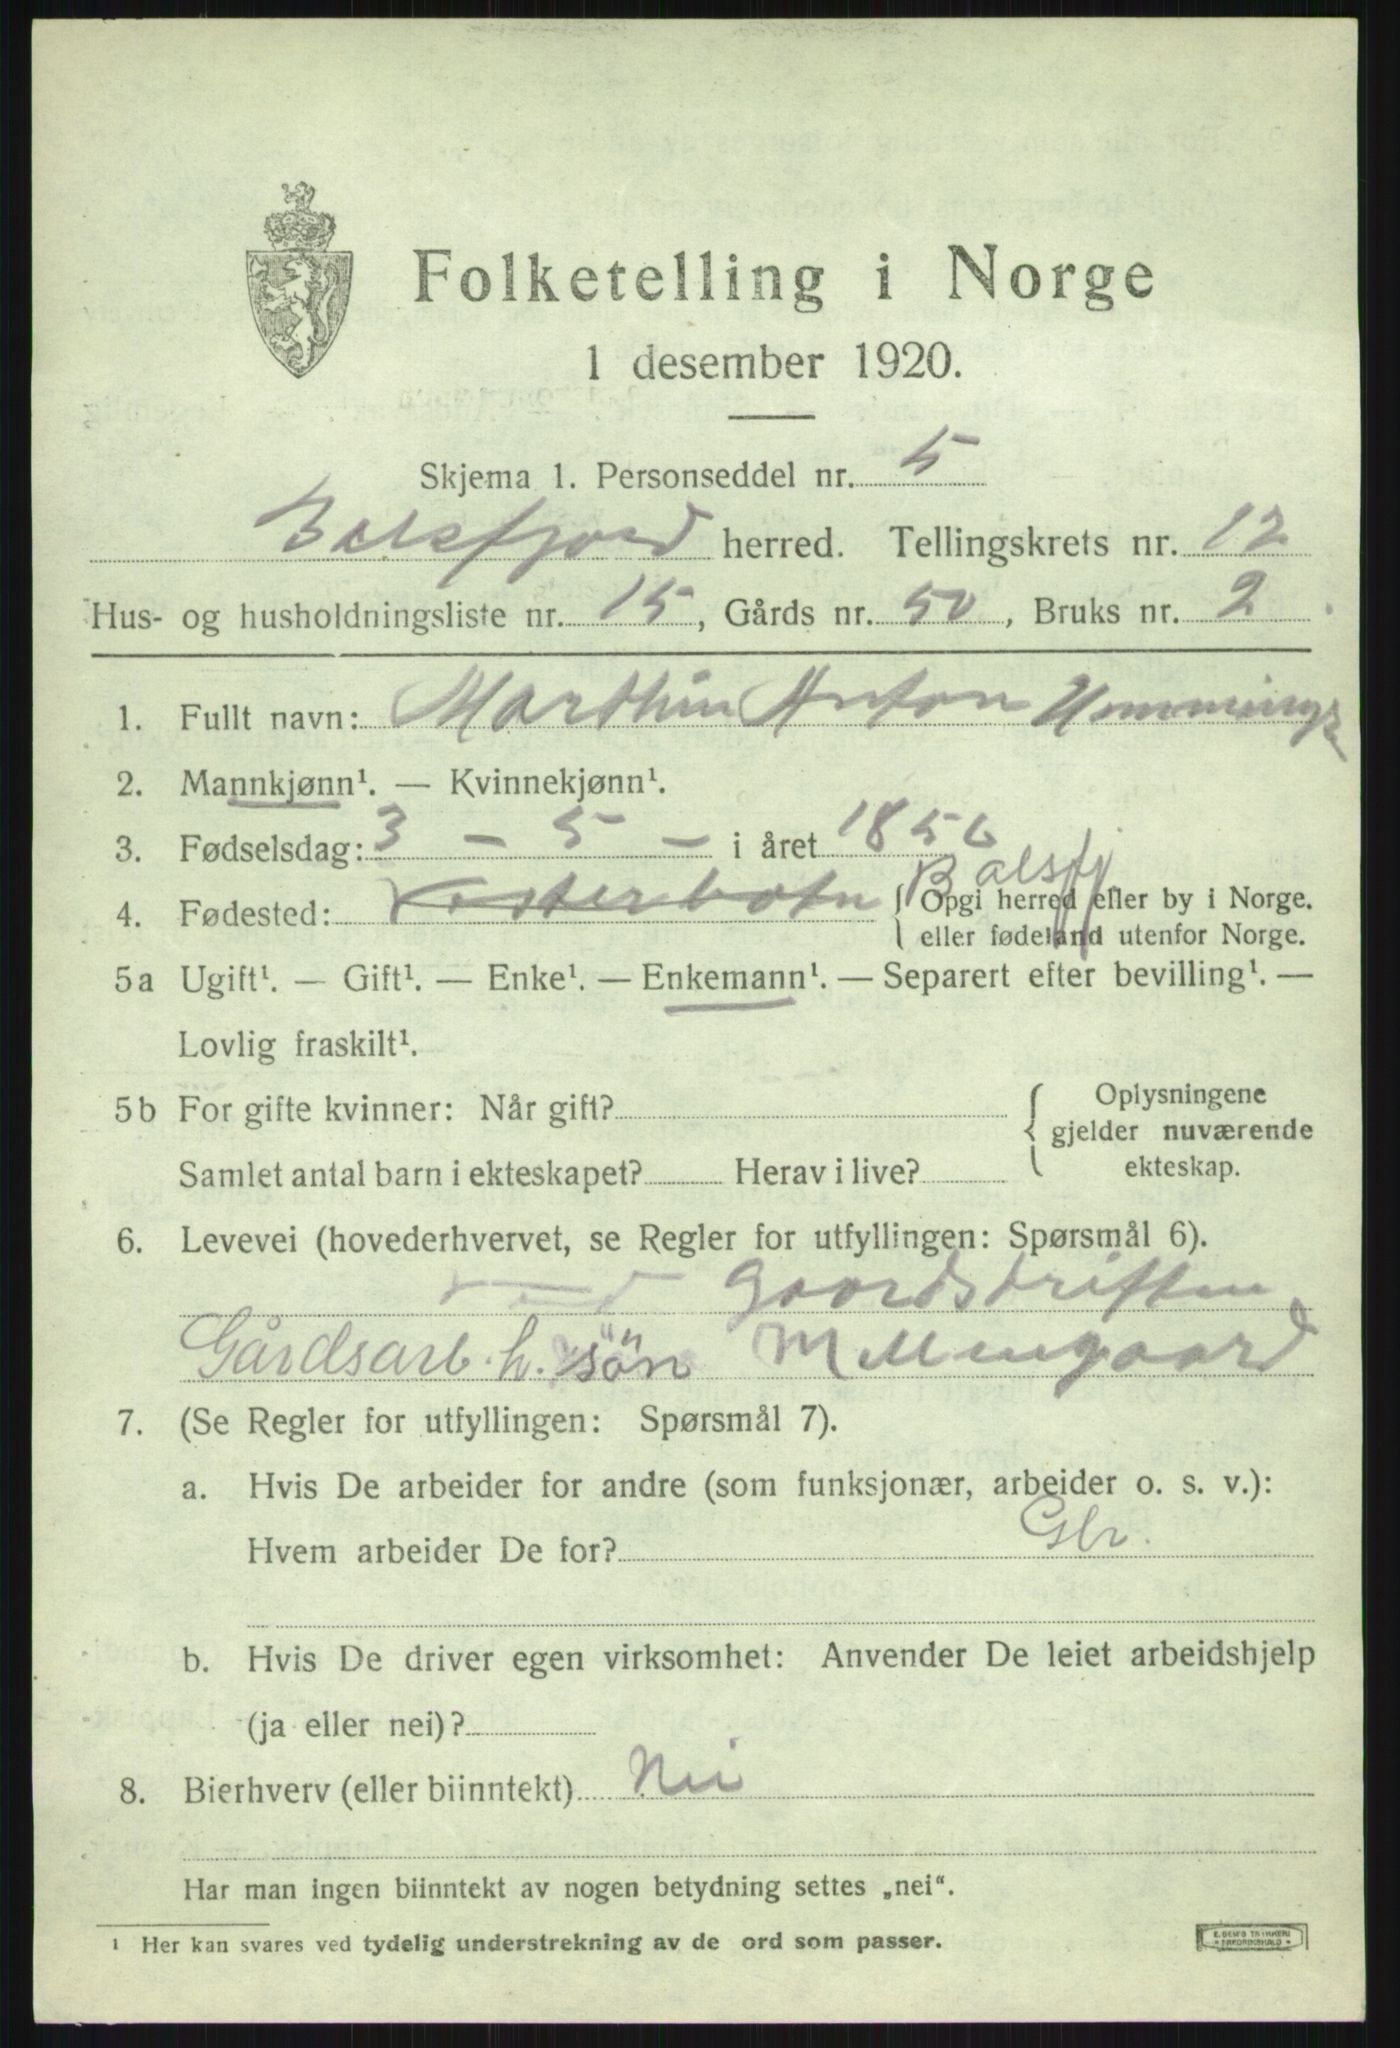 Folketelling i Norge
1 desember 1920.
Skjema 1. Personseddel nr. 5
Balsfjord herred. Tellingskrets nr. 12
Hus- og husholdningsliste nr. 15, Gårds nr. 50, Bruks nr. 2
1. Fullt navn: Marthin Anton
2. Mannkjønn¹. — Kvinnekjønn¹.
3. Fødselsdag: 3 - 5 - i året 1856
Balsfj
4. Fødested: { Opgi herred eller by i Norge.
eller fødeland utenfor Norge.
5a Ugift¹. — Gift¹. — Enke¹. — Enkemann¹. — Separert efter bevilling¹. —
Lovlig fraskilt¹.
5b For gifte kvinner: Når gift? { Oplysningene
gjelder nuværende
ekteskap.
Samlet antal barn i ekteskapet? Herav i live?
6. Levevei (hovederhvervet, se Regler for utfyllingen: Spørsmål 6).
ved Gaardsdriften
Gårdsarb. h. søn
7. (Se Regler for utfyllingen: Spørsmål 7).
a. Hvis De arbeider for andre (som funksjonær, arbeider o. s. v.):
Hvem arbeider De for? Gbr.
b. Hvis De driver egen virksomhet: Anvender De leiet arbeidshjelp
(ja eller nei)?
8. Bierhverv (eller biinntekt) Nei
Har man ingen biinntekt av nogen betydning settes „nei“.
¹ Her kan svares ved tydelig understrekning av de ord som passer.